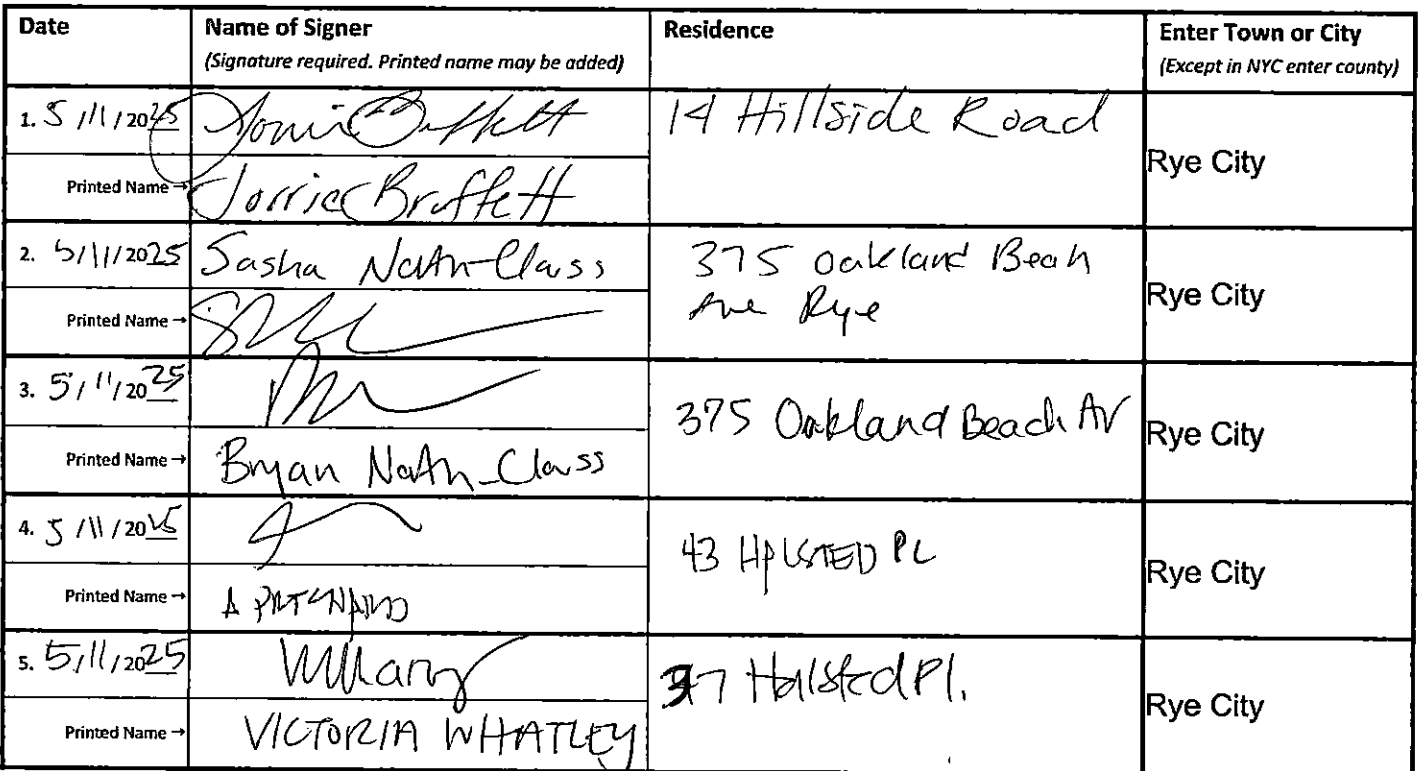 Date Name of Signer Residence Enter Town or City
(Signature required. Printed name may be added) (Except in NYC enter county)
1. 5/11/2025 14 Hillside Road Rye City
Printed Name → Jorrie Bruffett
2. 5/11/2025 Sasha Nath-Class 375 Oakland Beah
Ave Rye Rye City
Printed Name →
3. 5/11/2025 375 Oakland Beach Av Rye City
Printed Name → Bryan Nath-Class
4. 5/11/2025 43 HALSTED PL Rye City
Printed Name → A
5. 5/11/2025 37 Halsted Pl. Rye City
Printed Name → VICTORIA WHATLEY